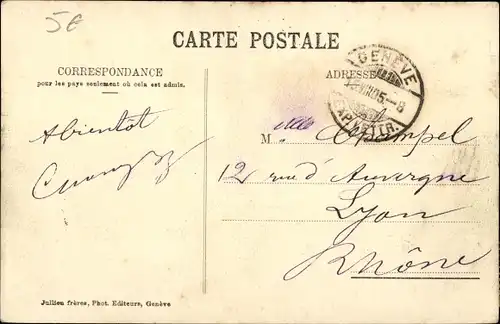 5€
CARTE POSTALE
CORRESPONDANCE
pour les pays seulement où cela est admis.
ADRESSE
GENÈVE
EXP. LETTR.
A bientôt
Mlle
12 rue d'Auvergne
Lyon
Rhône
Jullien frères, Phot. Editeurs, Genève